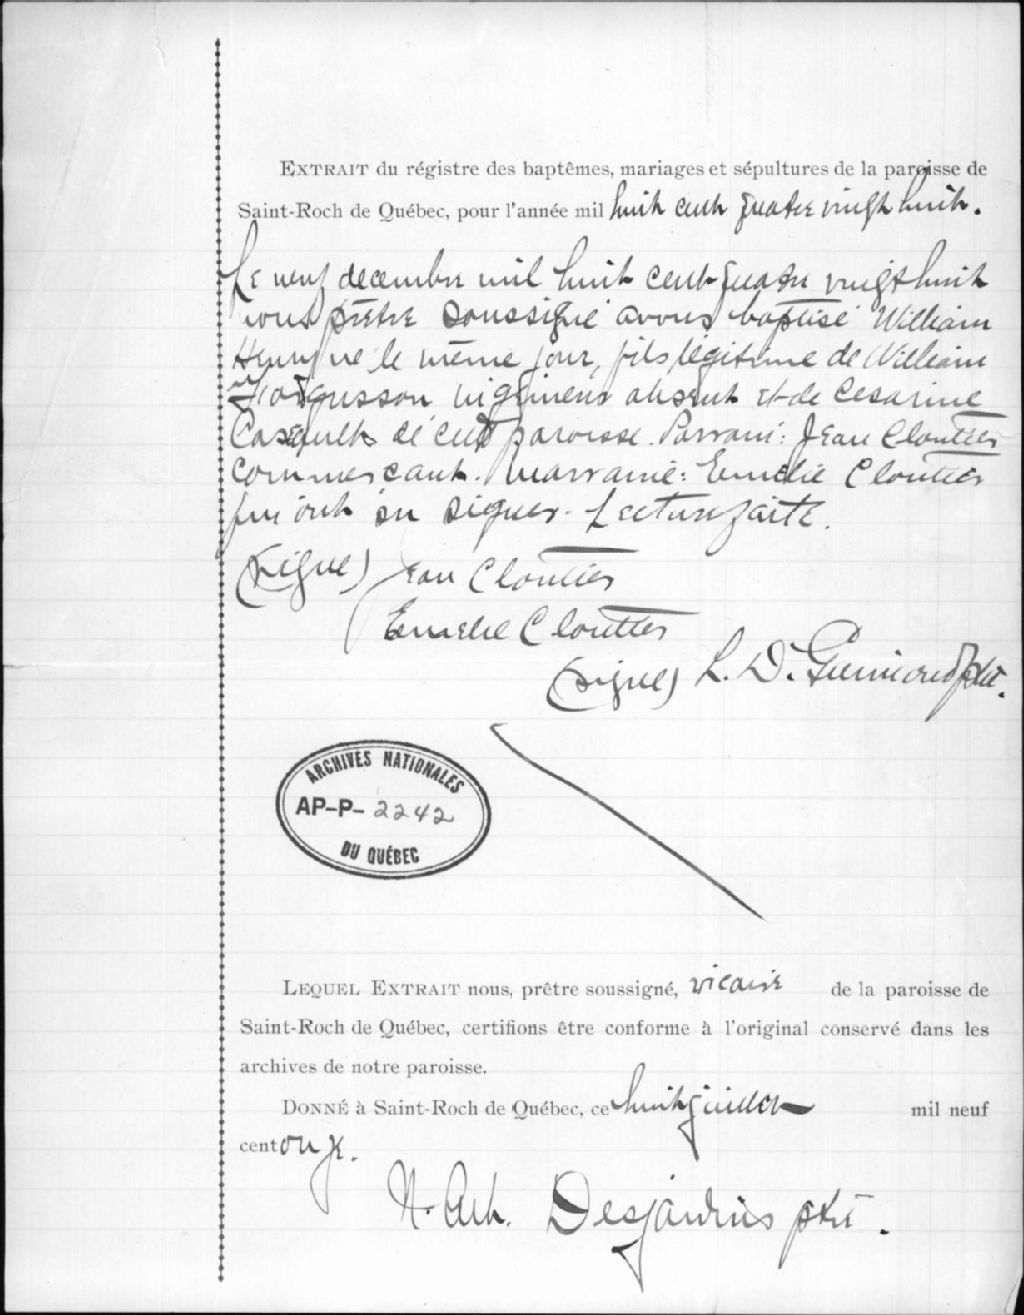 EXTRAIT du régistre des baptêmes, mariages et sépultures de la paroisse de
Saint-Roch de Québec, pour l'année mil huit cent quatre vingt huit.
Le neuf decembre mil huit cent quatre vingt huit
nous prêtre soussigné avons baptisé William
Henry né le même jour, fils légitime de William
absent et de Cesarine
de cette paroisse. Parrain: Jean Cloutier
commercant. Marraine: Emélie Cloutier
qui ont su signer. Lecture faite.
(Signé) Jean Cloutier
Emelie Cloutier
(signé) L. D. Guimond ptre.
ARCHIVES NATIONALES
AP-P-2242
DU QUÉBEC
LEQUEL EXTRAIT nous, prêtre soussigné, vicaire de la paroisse de
Saint-Roch de Québec, certifions être conforme à l'original conservé dans les
archives de notre paroisse.
DONNÉ à Saint-Roch de Québec, ce huit juillet mil neuf
cent onze.
N. Art. Desjardins ptre.